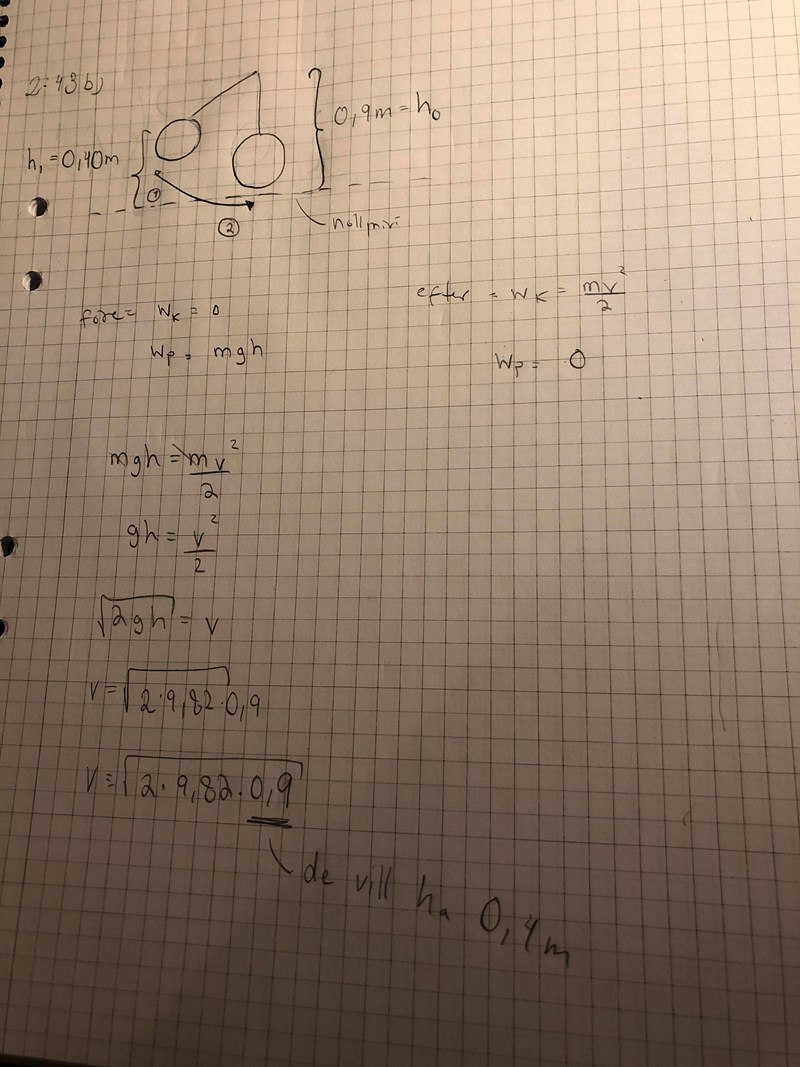 2.43b)
0,9m = h₀
h₁ = 0,40m
①
②
före = Wₖ = 0
Wₚ = mgh
efter = Wₖ = mv²/2
Wₚ = 0
mgh = mv²/2
gh = v²/2
√2gh = v
v = √2·9,82·0,9
v = √2·9,82·0,9
de vill ha 0,4m